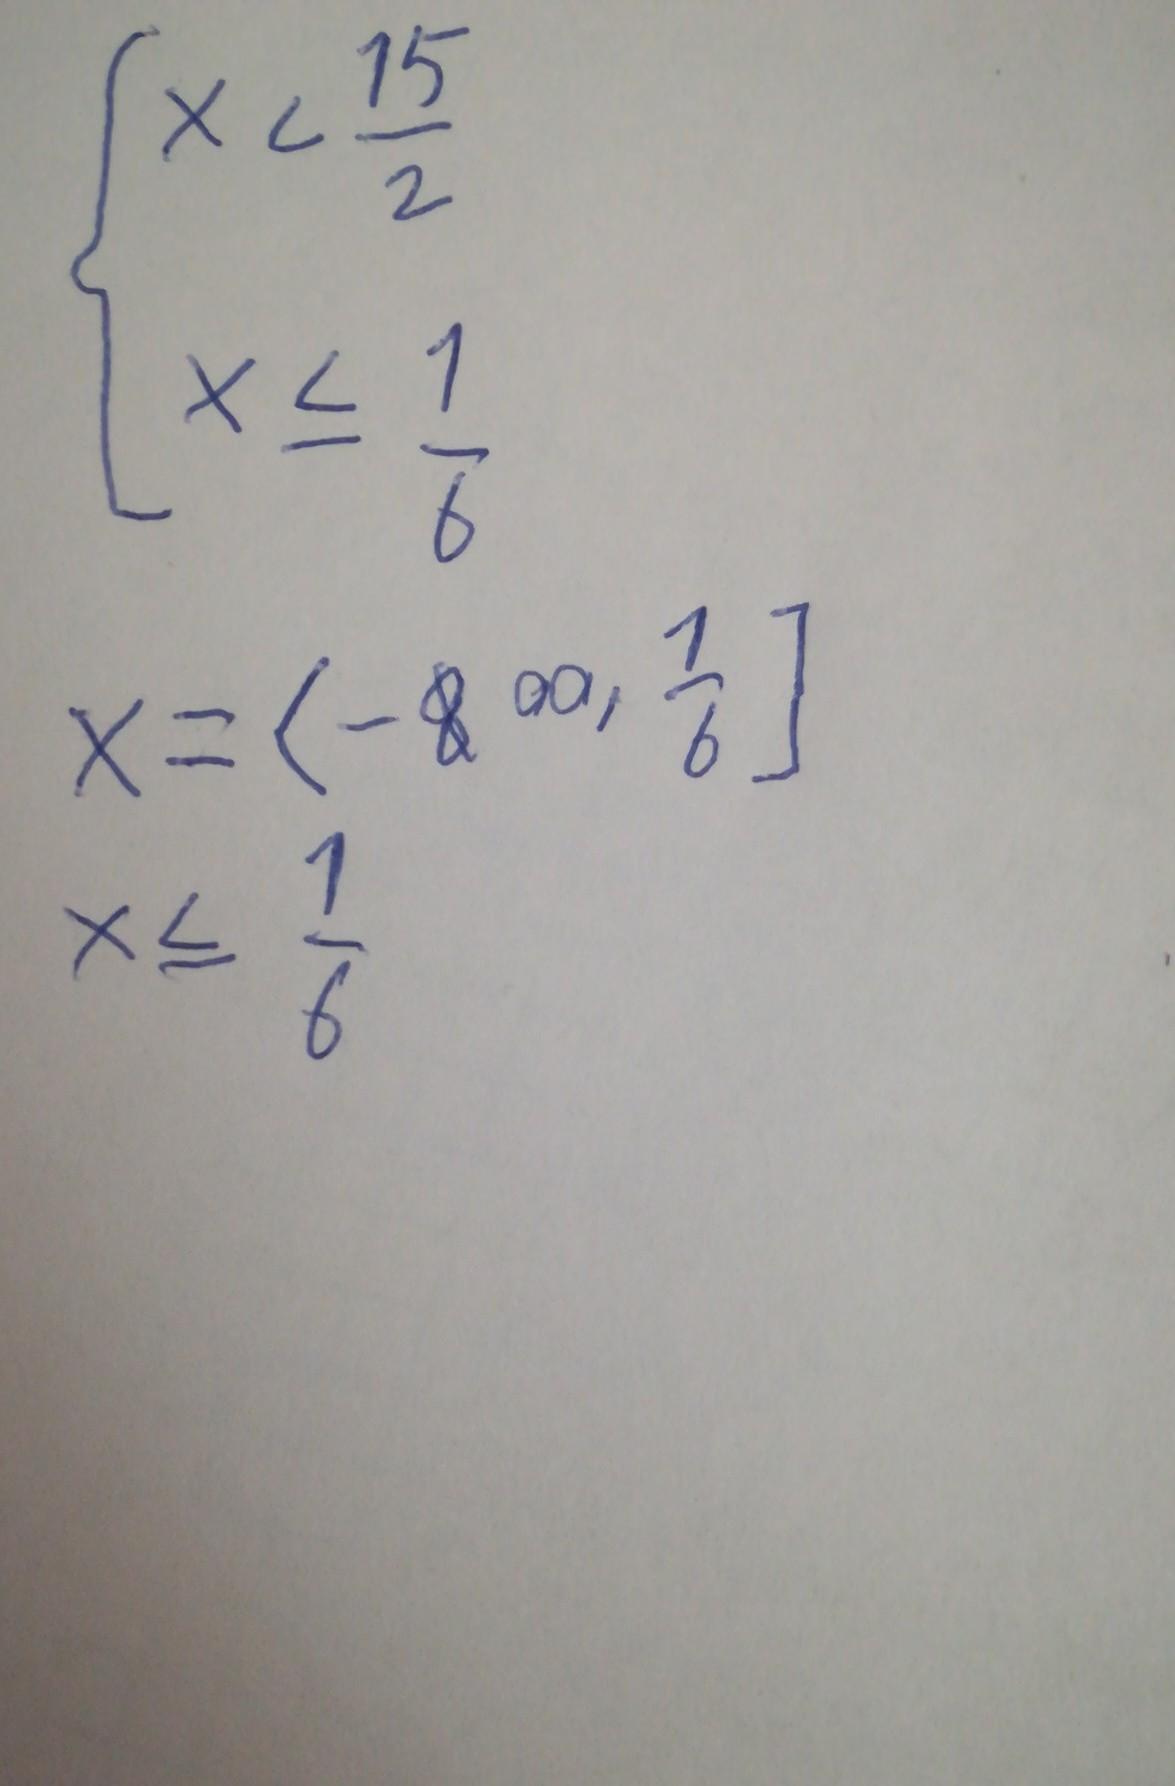 { x < 15/2
x ≤ 1/6
x = (-∞, 1/6]
x ≤ 1/6